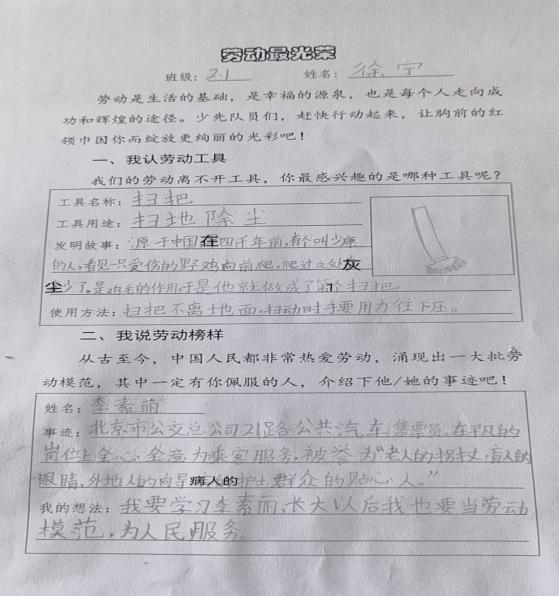 劳动最光荣
班级：2.1 姓名：徐宁
劳动是生活的基础，是幸福的源泉，也是每个人走向成
功和辉煌的途径。少先队员们，赶快行动起来，让胸前的红
领巾因你而绽放更绚丽的光彩吧！
一、我认劳动工具
我们的劳动离不开工具，你最感兴趣的是哪种工具呢？
工具名称：扫把
工具用途：扫地除尘
发明故事：源于中国在四千年前，有个叫少康
的人，看见一只受伤的野鸡向前爬，爬过之处灰
尘少了，是鸡毛的作用于是他就做成了第1个扫把。
使用方法：扫把不离地面，扫动时手要用力往下压。
二、我说劳动榜样
从古至今，中国人民都非常热爱劳动，涌现出一大批劳
动模范，其中一定有你佩服的人，介绍下他/她的事迹吧！
姓名：李素丽
事迹：北京市公交总公司21路公共汽车售票员。在平凡的
岗位上全心全意为乘客服务，被誉为“老人的拐杖，盲人的
眼睛，外地人的向导，病人的护士，群众的贴心人。”
我的想法：我要学习李素丽，长大以后我也要当劳动
模范，为人民服务。